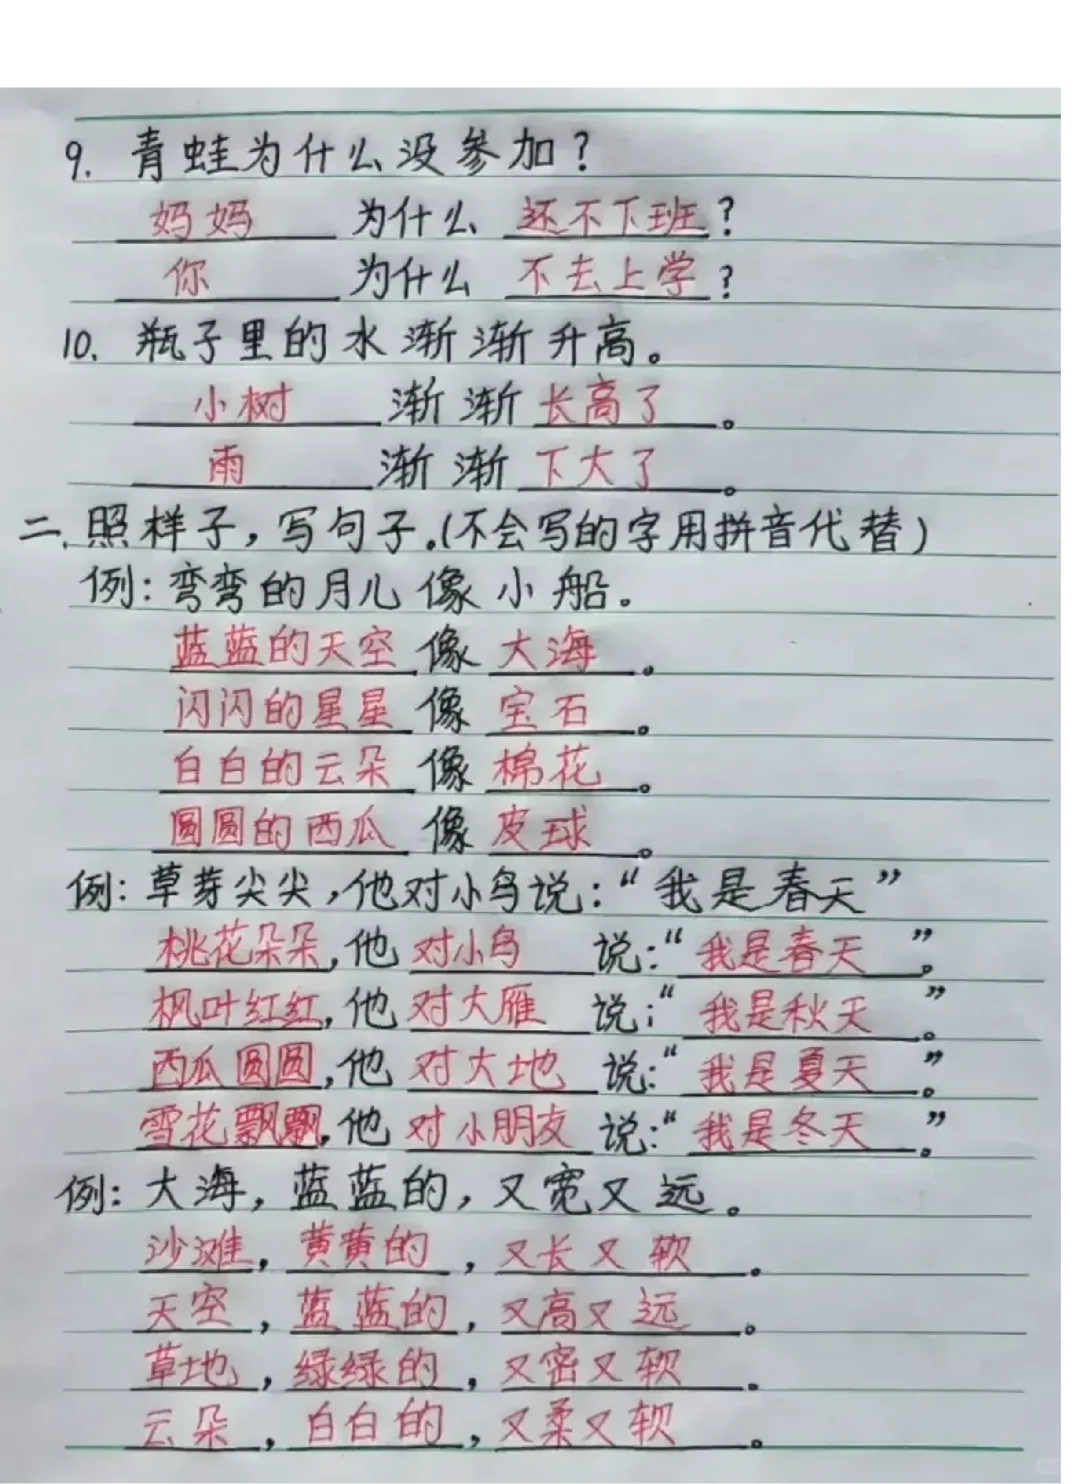 9. 青蛙为什么没参加?
妈妈 为什么 还不下班?
你 为什么 不去上学?
10. 瓶子里的水渐渐升高。
小树 渐渐长高了。
雨 渐渐下大了。
二.照样子,写句子.(不会写的字用拼音代替)
例:弯弯的月儿像小船。
蓝蓝的天空像大海。
闪闪的星星像宝石。
白白的云朵像棉花。
圆圆的西瓜像皮球。
例:草芽尖尖,他对小鸟说:“我是春天”
桃花朵朵,他对小鸟说:“我是春天。”
枫叶红红,他对大雁说:“我是秋天。”
西瓜圆圆,他对大地说:“我是夏天。”
雪花飘飘,他对小朋友说:“我是冬天。”
例:大海,蓝蓝的,又宽又远。
沙滩,黄黄的,又长又软。
天空,蓝蓝的,又高又远。
草地,绿绿的,又密又软。
云朵,白白的,又柔又软。